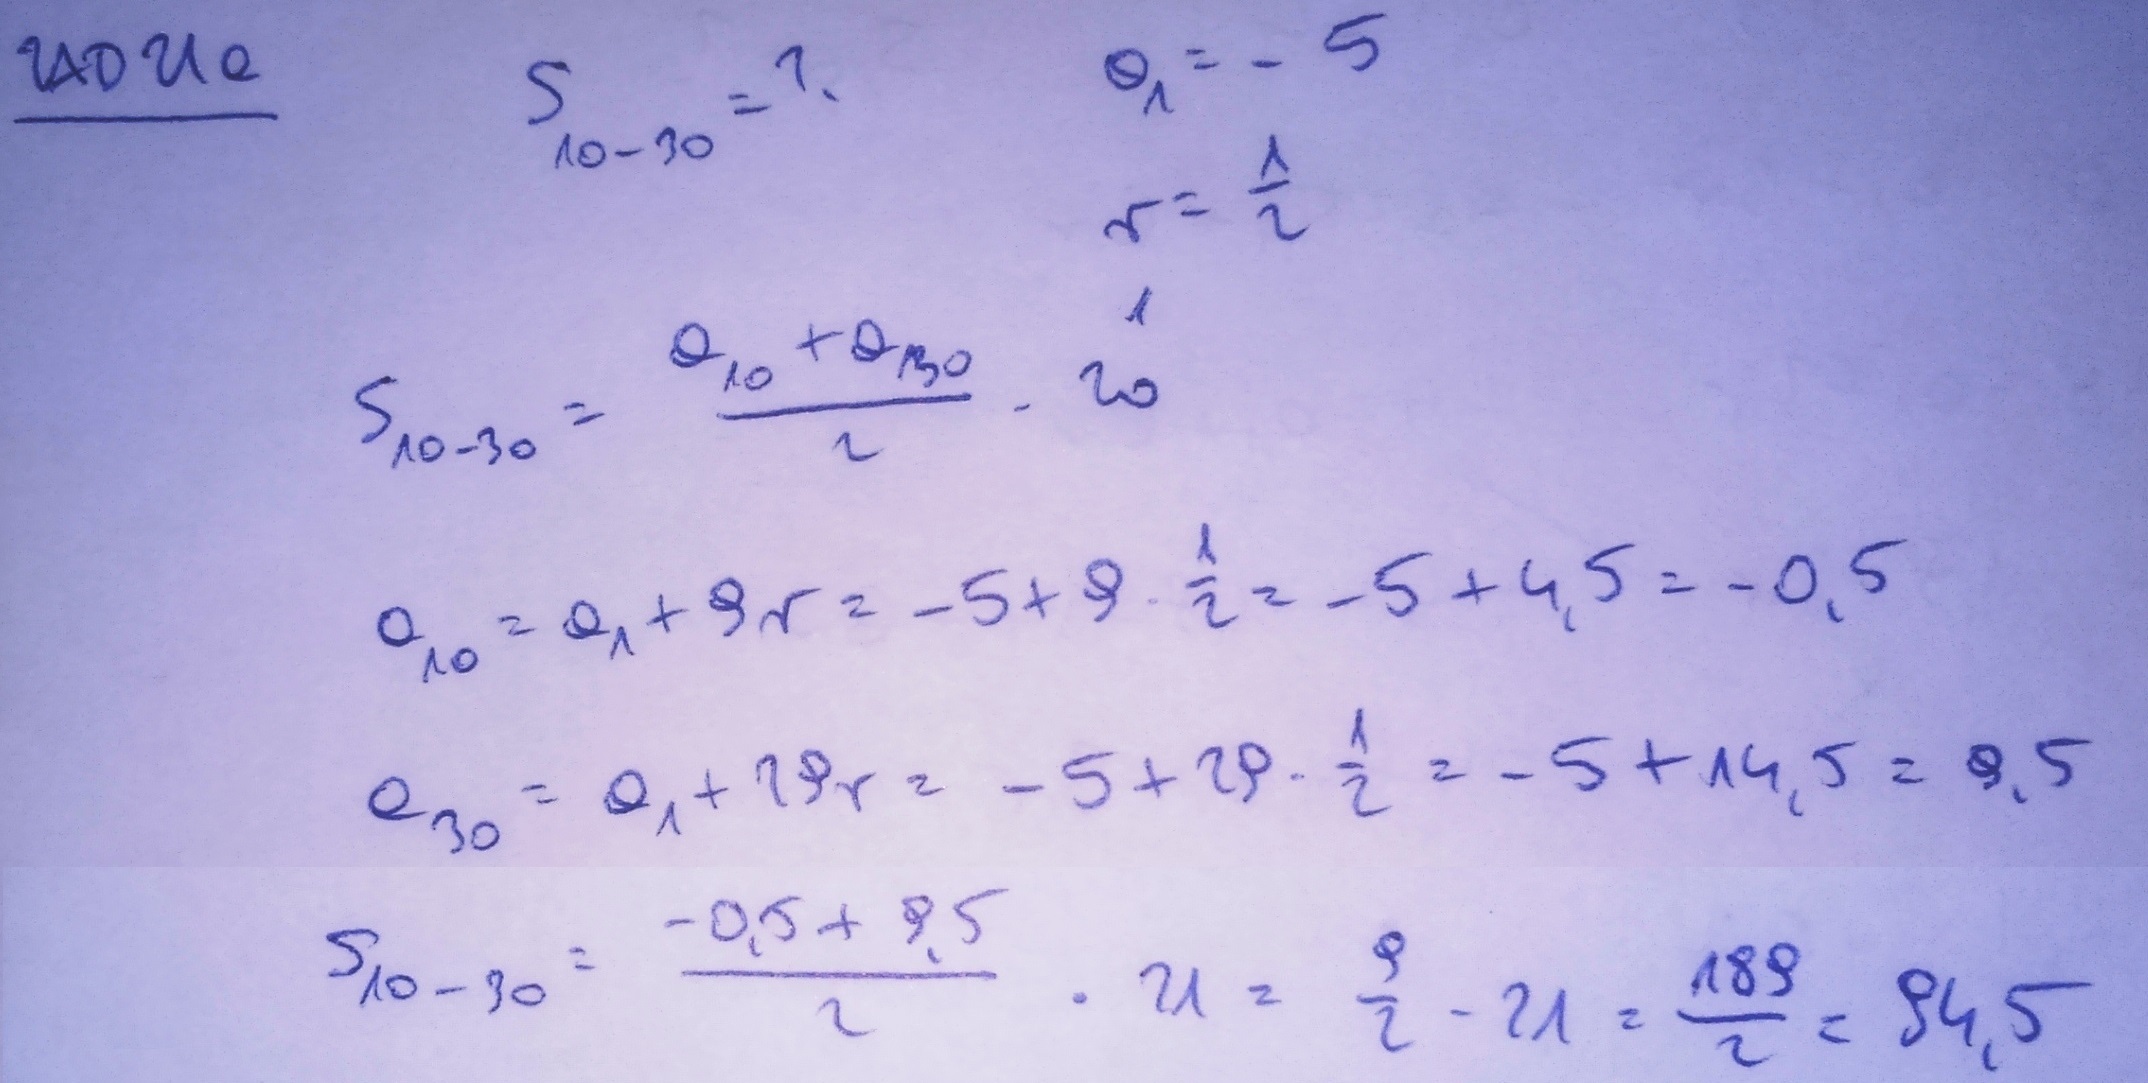 S₁₀₋₃₀ = ? a₁ = - 5
r = 1/2
S₁₀₋₃₀ = (a₁₀ + a₃₀)/2 · 20
a₁₀ = a₁ + 9r = -5 + 9 · 1/2 = -5 + 4,5 = -0,5
a₃₀ = a₁ + 29r = -5 + 29 · 1/2 = -5 + 14,5 = 9,5
S₁₀₋₃₀ = (-0,5 + 9,5)/2 · 21 = 9/2 · 21 = 189/2 = 94,5